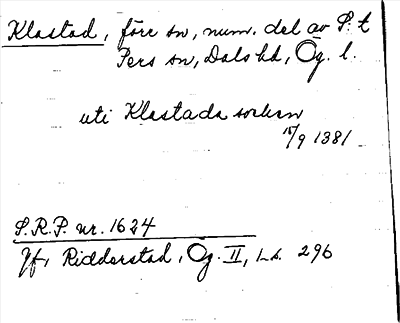 Klastad, förr sn, num. del av S:t
Pers sn, Dals hd, Ög. l.
uti Klastada sorkern
15/9 1381
S.R.P. nr. 1624
Jfr Ridderstad, Ög. II, 1. s. 296